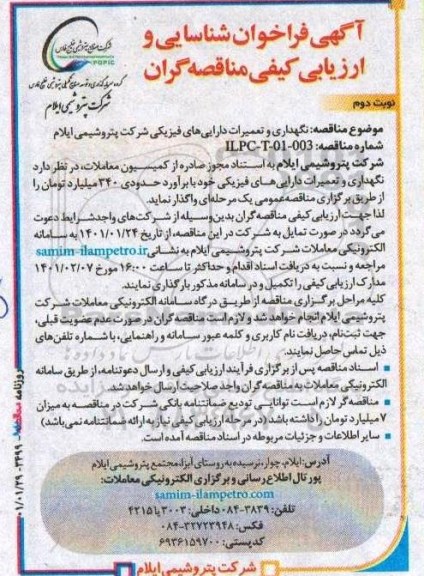 آگهی فراخوان شناسایی و
ارزیابی کیفی مناقصه‌گران
شرکت صنایع پتروشیمی خلیج فارس
PGPIC
شرکت پتروشیمی ایلام
نوبت دوم
موضوع مناقصه: نگهداری و تعمیرات دارایی‌های فیزیکی شرکت پتروشیمی ایلام
شماره مناقصه: ILPC-T-01-003
شرکت پتروشیمی ایلام به استناد مجوز صادره از کمیسیون معاملات، در نظر دارد
نگهداری و تعمیرات دارایی‌های فیزیکی خود با برآورد حدودی ۳۴۰ میلیارد تومان را
از طریق برگزاری مناقصه عمومی یک مرحله‌ای واگذار نماید.
لذا جهت ارزیابی کیفی مناقصه‌گران بدین‌وسیله از شرکت‌های واجد شرایط دعوت
می‌گردد در صورت تمایل به شرکت در این مناقصه از تاریخ ۱۴۰۱/۰۱/۲۴ به سامانه
الکترونیکی معاملات شرکت پتروشیمی ایلام به نشانی samim-ilampetro.ir
مراجعه و نسبت به دریافت اسناد اقدام و حداکثر تا ساعت ۱۶:۰۰ مورخ ۱۴۰۱/۰۲/۰۷
مدارک ارزیابی کیفی را تکمیل و در سامانه مذکور بارگذاری نمایند.
کلیه مراحل برگزاری مناقصه از طریق درگاه سامانه الکترونیکی معاملات شرکت
پتروشیمی ایلام انجام خواهد شد و لازم است مناقصه‌گران، در صورت عدم عضویت قبلی،
جهت ثبت‌نام، دریافت نام کاربری و کلمه عبور سامانه و راهنمایی، با شماره تلفن‌های
ذیل تماس حاصل نمایند.
- اسناد مناقصه پس از برگزاری فرآیند ارزیابی کیفی و ارسال دعوتنامه، از طریق سامانه
الکترونیکی معاملات به مناقصه‌گران واجد صلاحیت ارسال خواهد شد.
- مناقصه‌گر لازم است توانایی تودیع ضمانتنامه بانکی شرکت در مناقصه به میزان
۷ میلیارد تومان را داشته باشد (در مرحله ارزیابی کیفی نیاز به ارائه ضمانتنامه نمی‌باشد)
- سایر اطلاعات و جزئیات مربوطه در اسناد مناقصه آمده است.
آدرس: ایلام، چوار، نرسیده به روستای آبزا، مجتمع پتروشیمی ایلام
پورتال اطلاع رسانی و برگزاری الکترونیکی معاملات:
samim-ilampetro.com
تلفن: ۳۸۳۹-۰۸۴ داخلی: ۳۰۰۳ یا ۴۲۱۵
فکس: ۳۲۷۲۳۹۴۸-۰۸۴
کدپستی: ۶۹۳۶۱۵۹۷۰۰
شرکت پتروشیمی ایلام